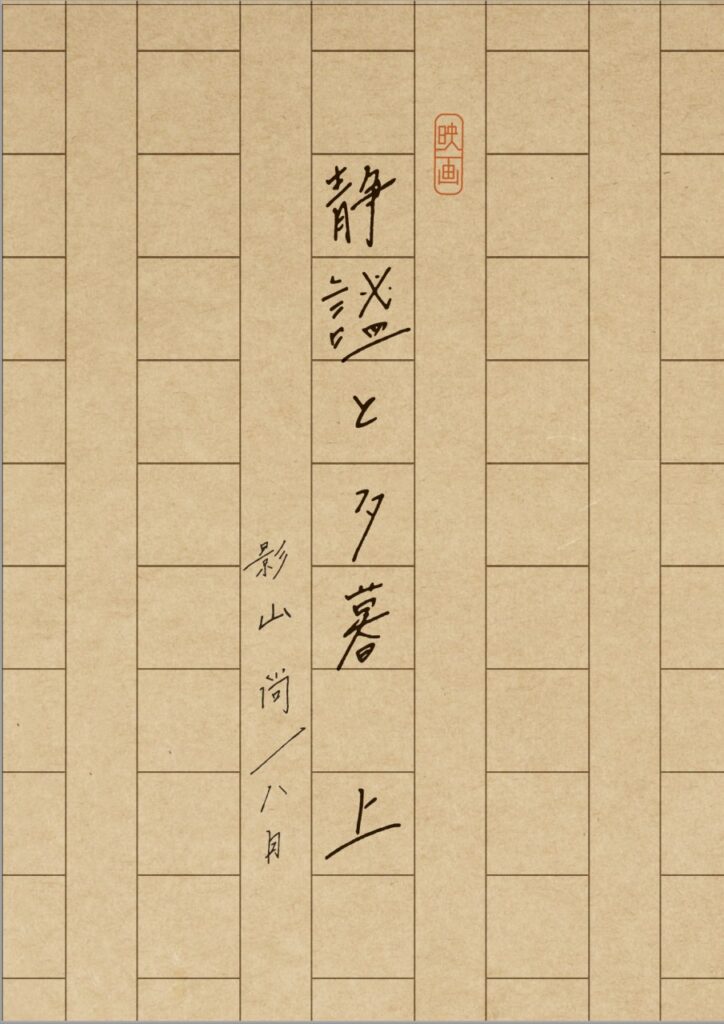 映画
静謐と夕暮 上
影山尚/八月